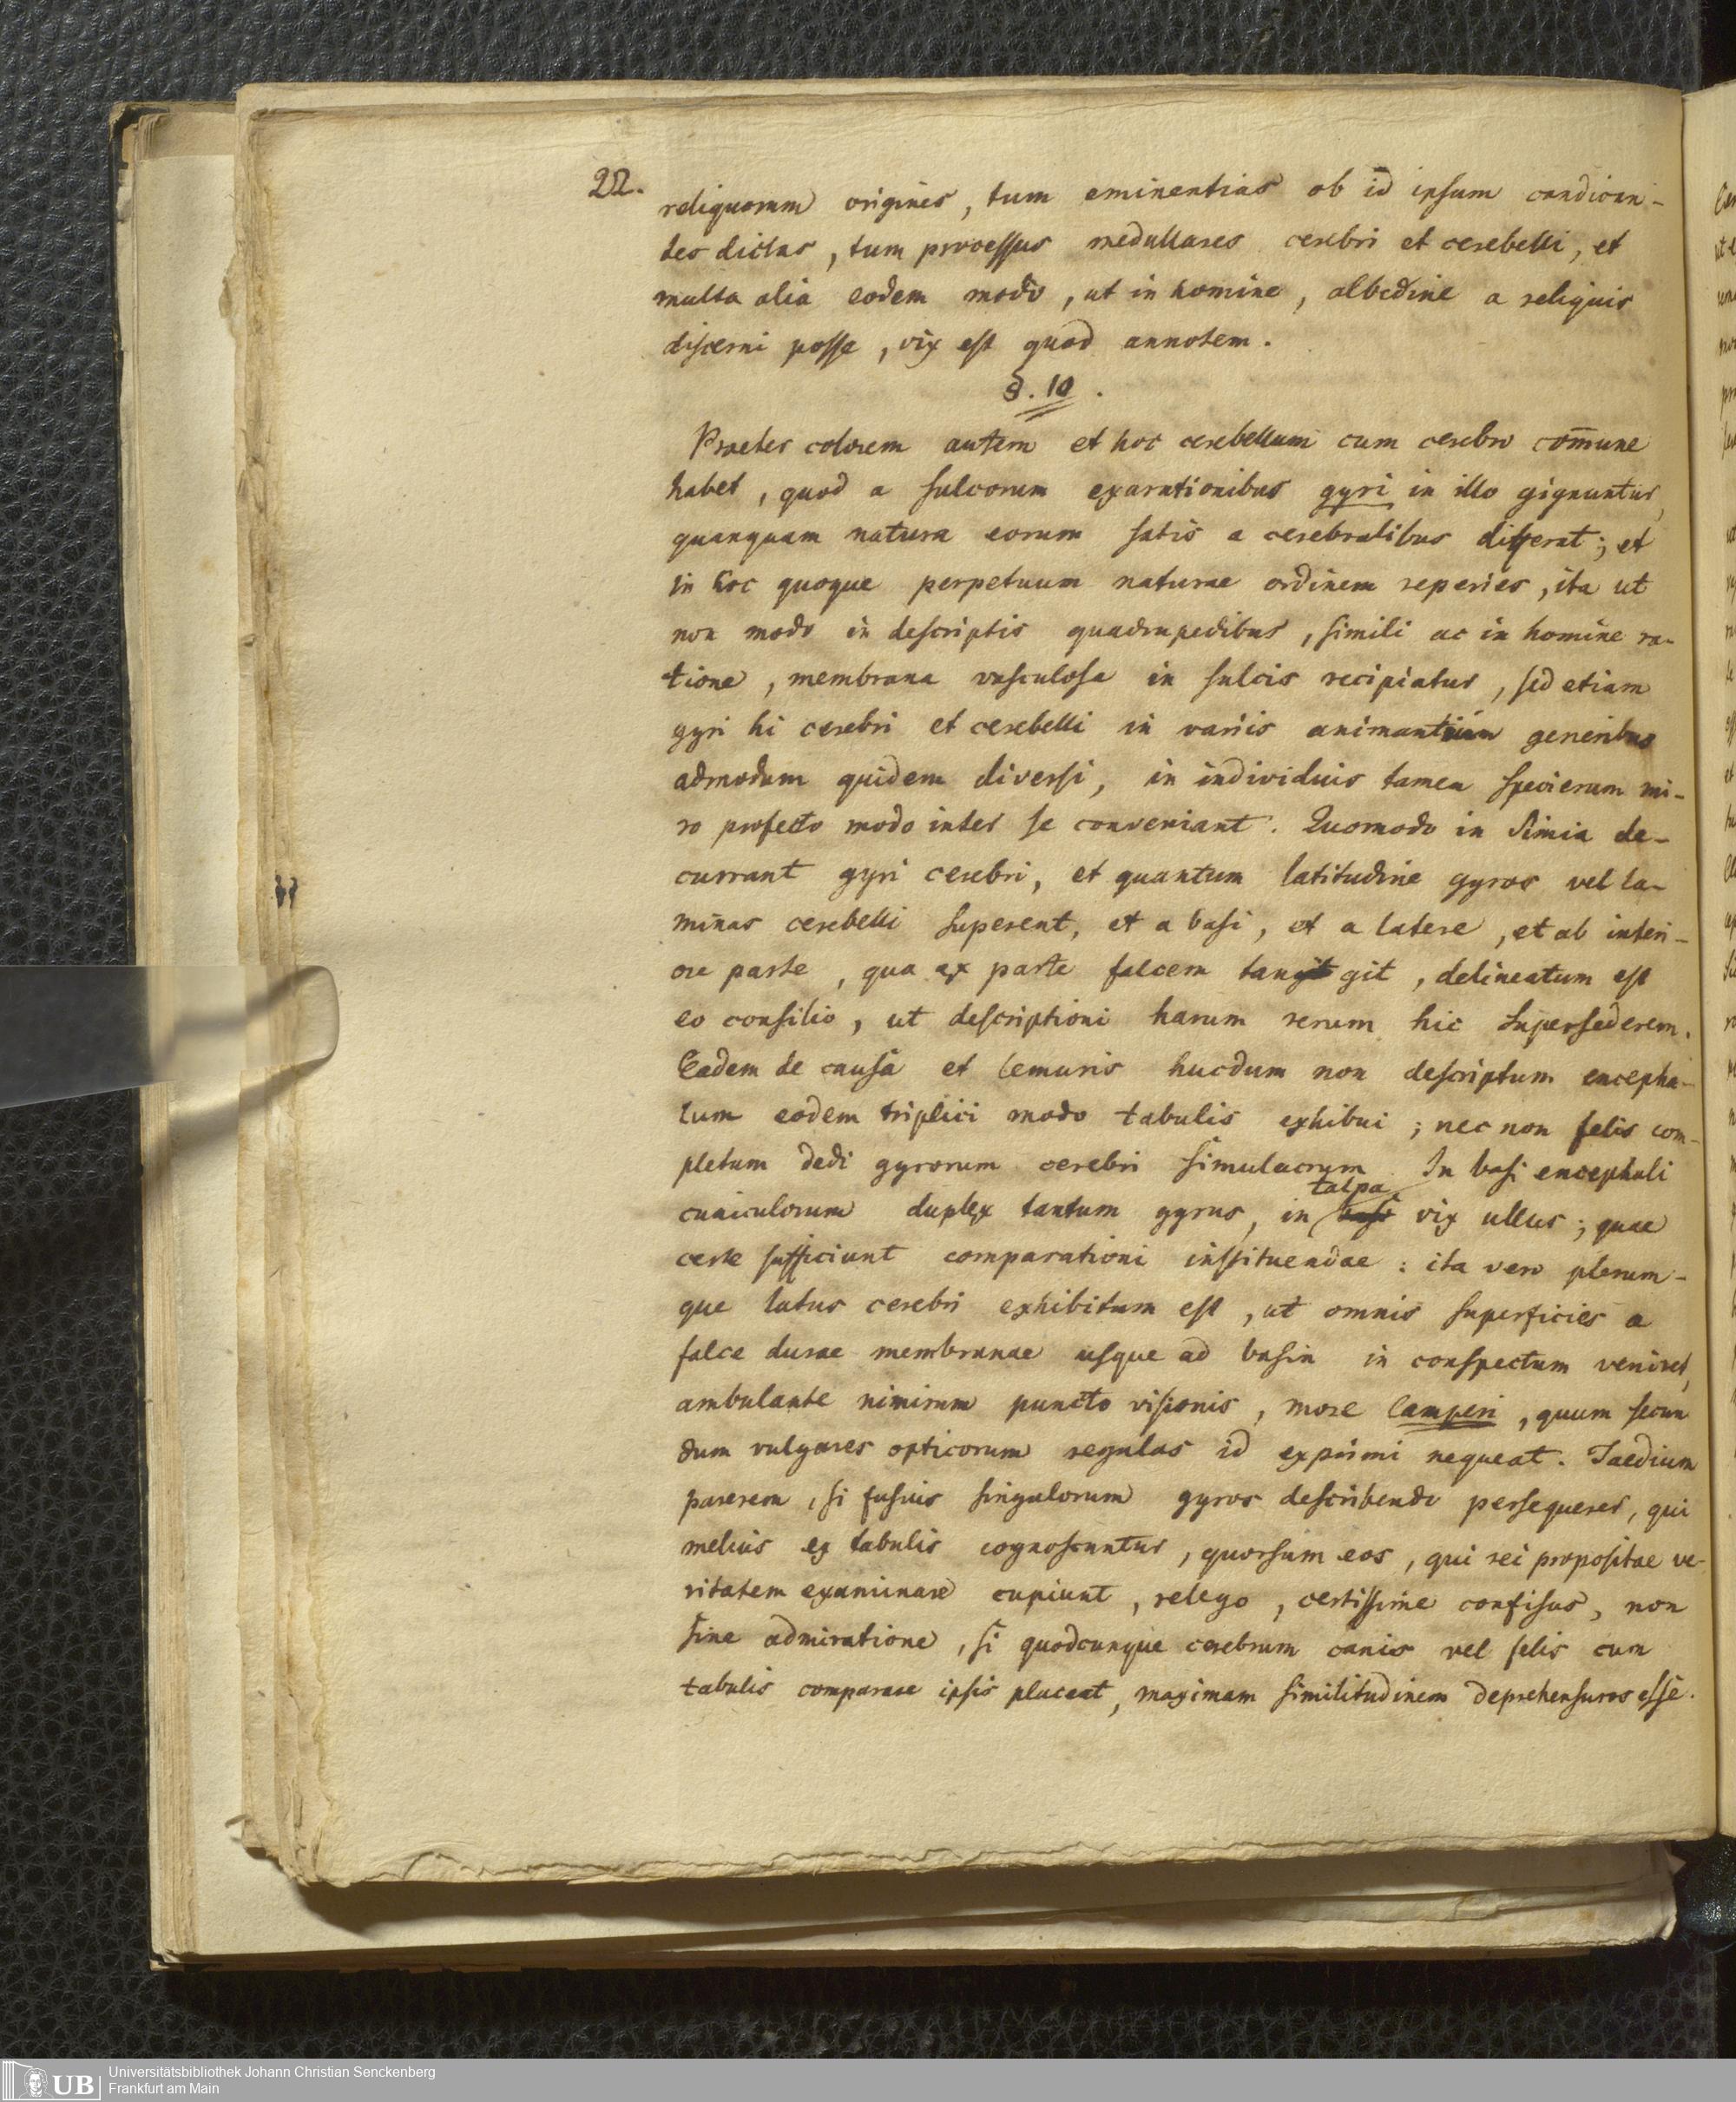 22.
reliquorum origines, tum eminentias ob id ipsum candican-
tes dictas, tum processus medullares cerebri et cerebelli, et
multa alia eodem modo, ut in homine, albedine a reliquis
discerni posse, vix est quod annotem.
§. 10.
Praeter colorem autem et hoc cerebellum cum cerebro com̄une
habet, quod a sulcorum exarationibus gyri in illo gignuntur,
quanquam natura eorum satis a cerebralibus differat; et
in hoc quoque perpetuum naturae ordinem reperies, ita ut
non modo in descriptis quadrupedibus, simili ac in homine ra-
tione, membrana vasculosa in sulcis recipiatur, sed etiam
gyri hi cerebri et cerebelli in variis animantium generibus
admodum quidem diversi, in individuis tamen specierum mi-
ro profecto modo inter se conveniant. Quomodo in Simia de-
currant gyri cerebri, et quantum latitudine gyros vel la-
minas cerebelli superent, et a basi, et a latere, et ab interi-
ore parte, qua ex parte falcem tangit git, delineatum est
eo consilio, ut descriptioni harum rerum hic supersederem.
Eadem de causa et Lemuris hucdum non descriptum encepha-
lum eodem triplici modo tabulis exhibui; nec non felis com-
pletum dedi gyrorum cerebri simulacrum. In basi encephali
cuniculorum duplex tantum gyrus, in talpa basi vix ullus; quae
certe sufficiunt comparationi instituendae: ita vero plerum-
que latus cerebri exhibitum est, ut omnis superficies a
falce durae membranae usque ad basin in conspectum veniret,
ambulante nimirum puncto visionis, more Camperi, quum secun
dum vulgares opticorum regulas id exprimi nequeat. Taedium
parerem, si fusius singulorum gyros describendo persequerer, qui
melius ex tabulis cognoscuntur, quorsum eos, qui rei propositae ve-
ritatem examinare cupiunt, relego, certissime confisus, non
sine admiratione, si quodcunque cerebrum canis vel felis cum
tabulis comparare ipsis placeat, maximam similitudinem deprehensuros esse.
UB
Universitätsbibliothek Johann Christian Senckenberg
Frankfurt am Main